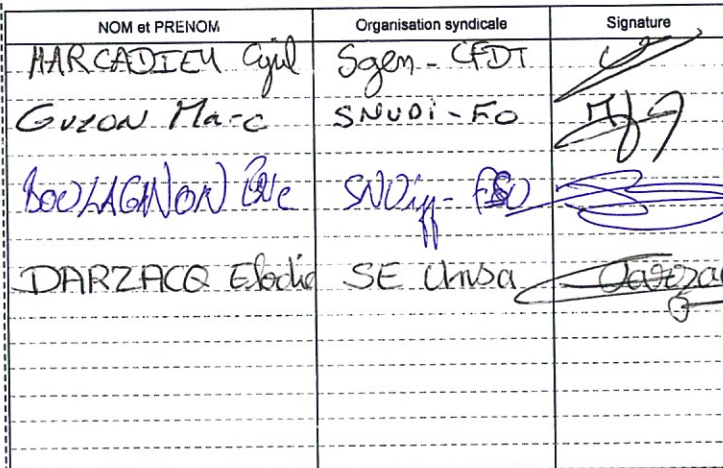 NOM et PRENOM Organisation syndicale Signature
MARCADIEU Cyril Sgen-CFDT
GUZON Marc SNUDi-FO
BOULAGNON SNUipp-FSU
DARZACQ Elodie SE Unsa Darzac